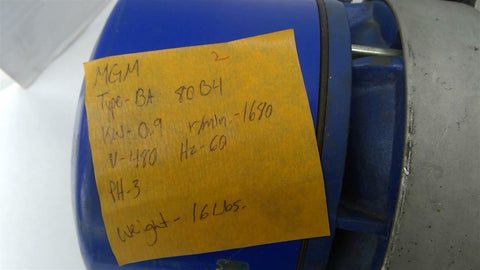 2
MGM
Type-BA 80B4
KW-0.9 r/min.-1680
V-480 Hz-60
PH-3
Weight - 16 Lbs.